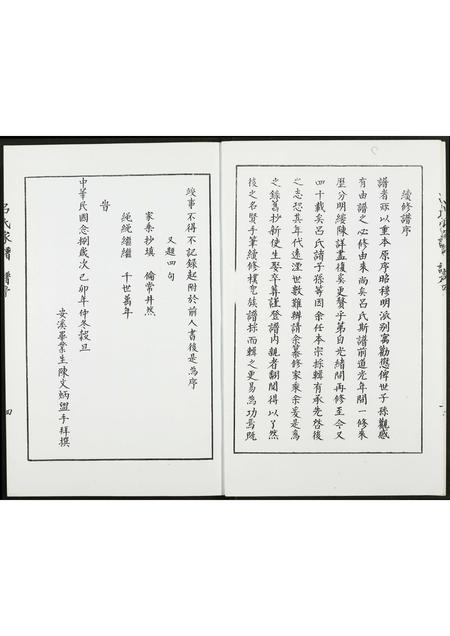 續修譜序
譜者所以重本原序昭穆明派別寓勸懲俾世子孫觀感
有由譜之必修由來尚矣呂氏斯譜前道光年間一修朱
歷分明綏陳詳盡復矣更贅乎弟自光緒間再修至今又
四十載矣呂氏諸子孫等因余任本宗採輯有承先啓後
之志恐其年代遠湮世數難辨請余纂修家乘余爰是為
之錄舊抄新使生娶卒葬謹登譜内親者翻閱得以了然
後之名賢手筆續修樸
族譜採而輯之更易為功焉既
竣事不得不記錄起附於前人書後是為序
又題四句
家乘抄填 倫常井然
繩繩繼繼 千世萬年
告
中華民國念捌歲次己卯年仲冬穀旦
安溪畢業生陳文炳盥手拜撰
呂氏家譜 譜序
四